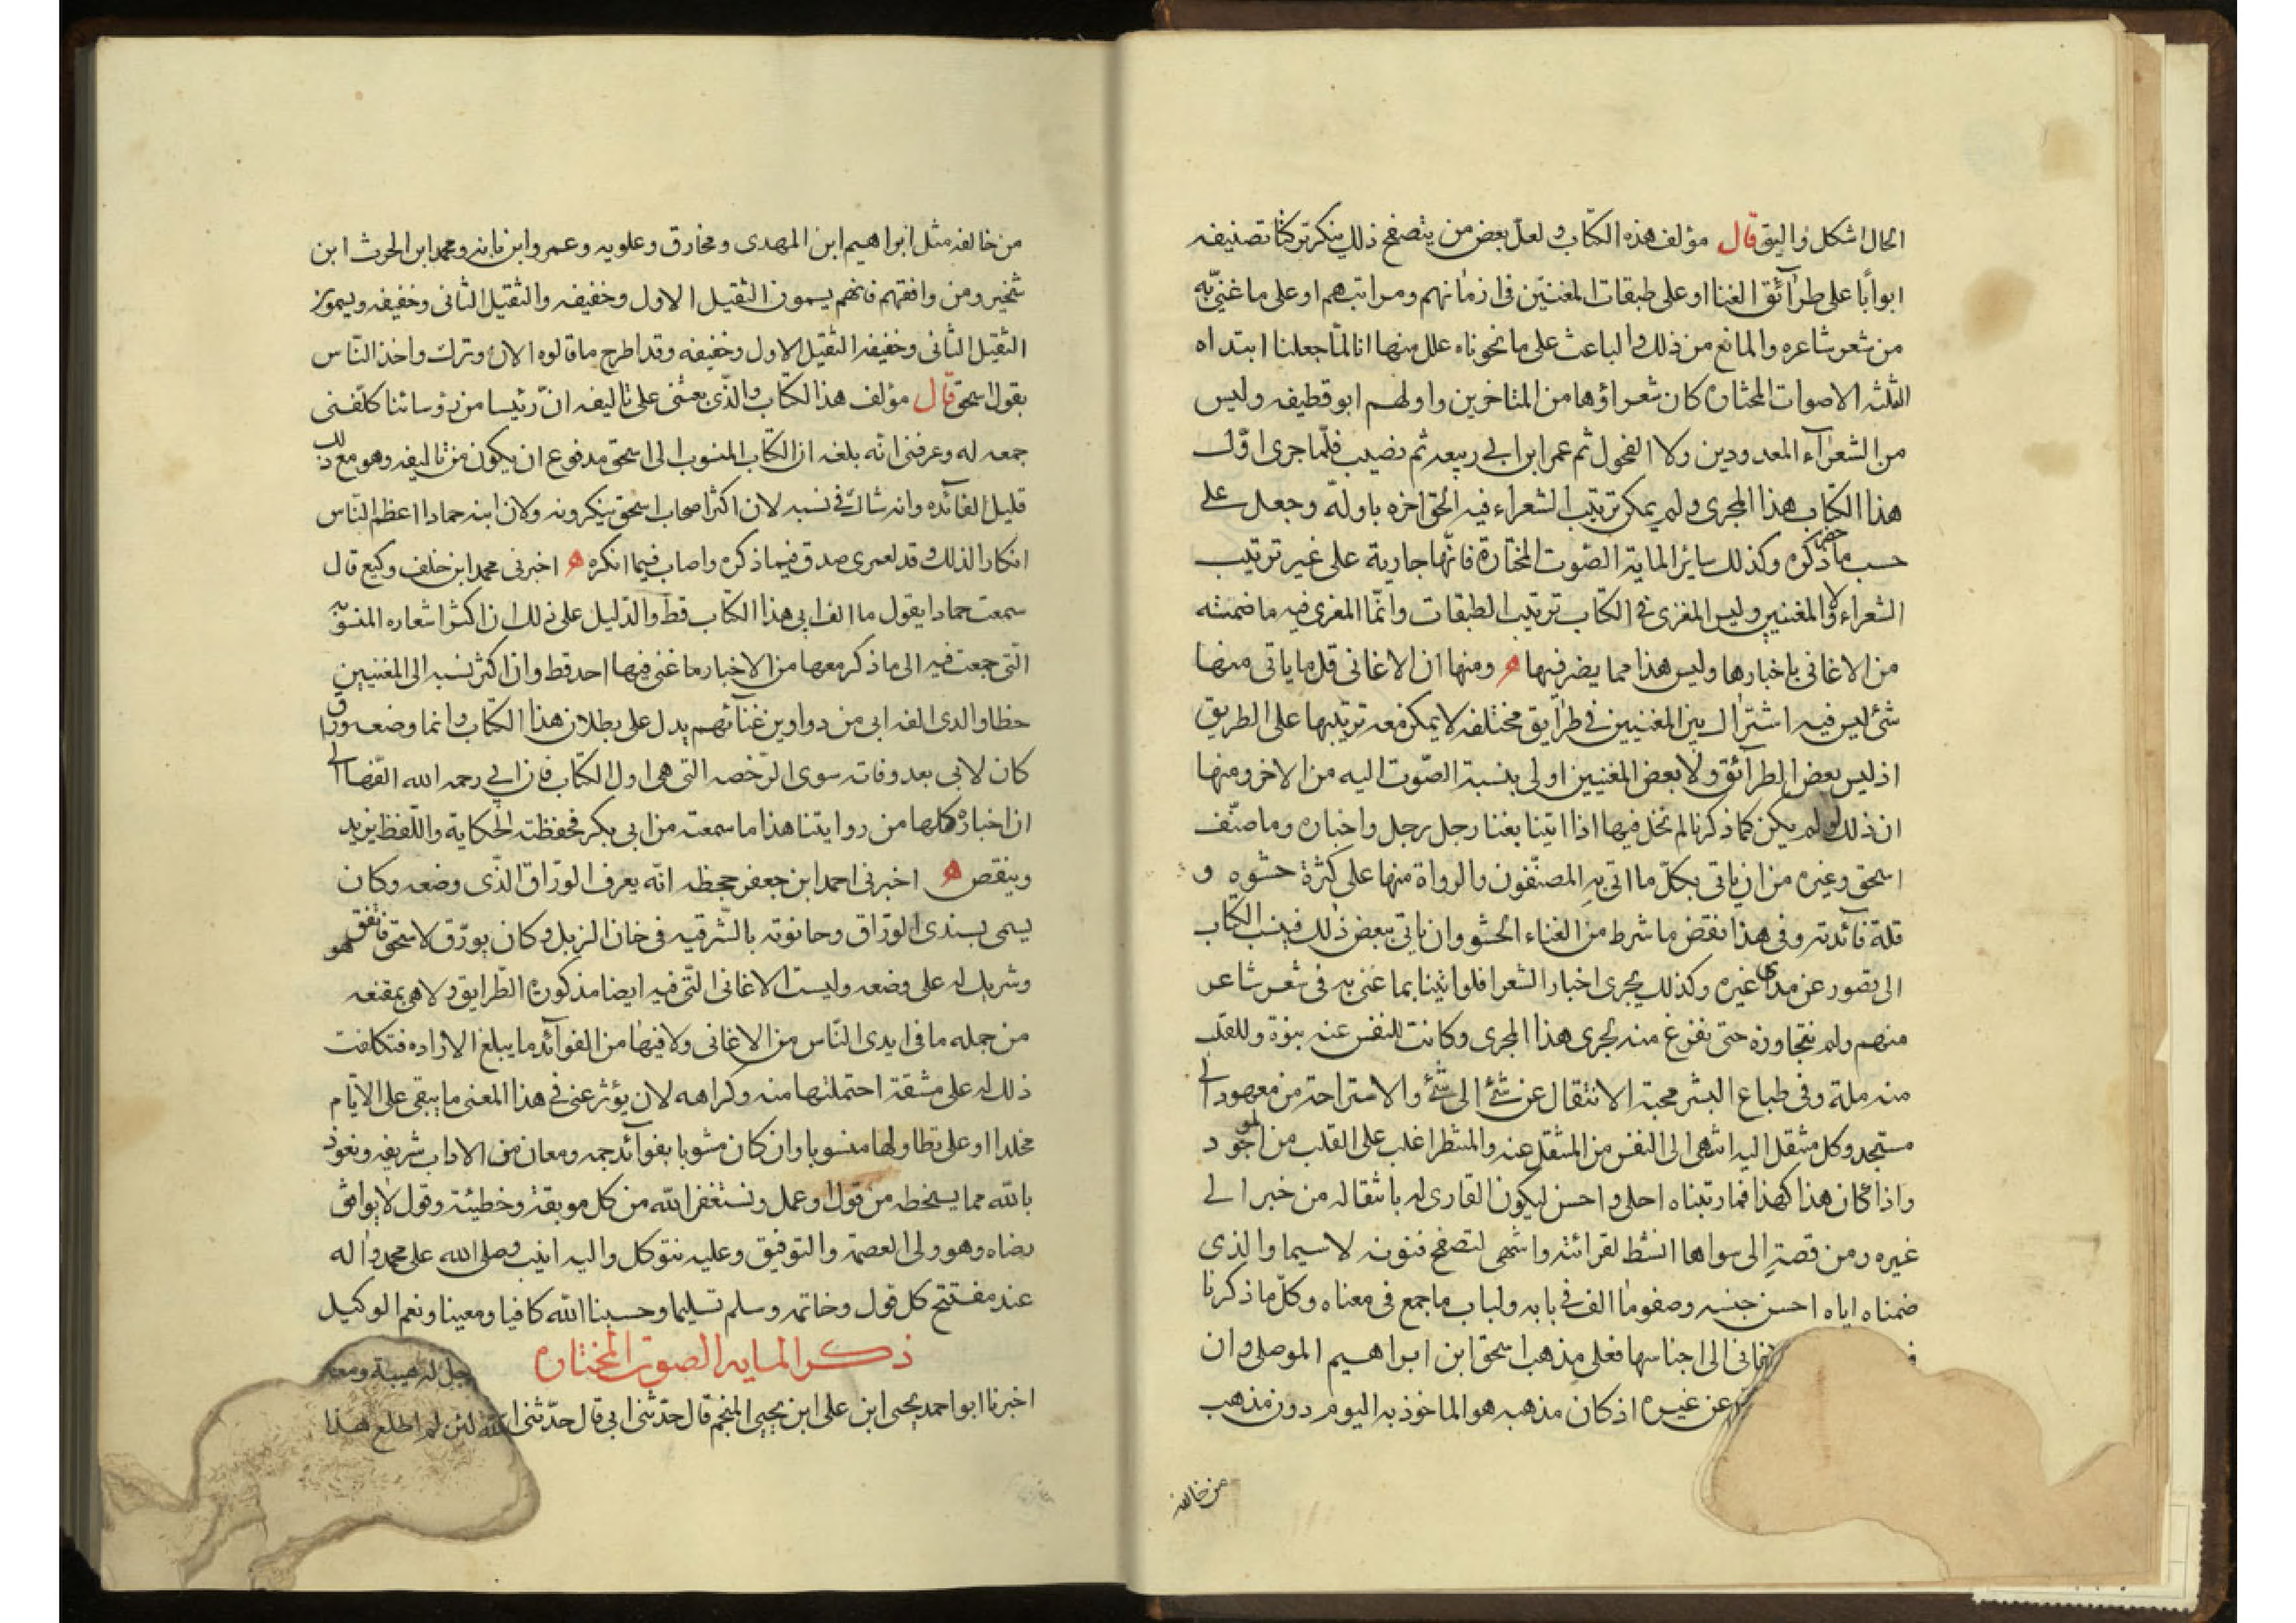 الحال اشكل واليق قال مؤلف هذه الكتاب ولعل بعض من يتصفح ذلك ينكر تركنا تصنيفه
ابوابا على طرآئق الغنا او على طبقات المغنين فى ازمانهم ومراتبهم او على ما غنى به
من شعر شاعره والمانع من ذلك والباعث على ما نحوناه علل منها انا لما جعلنا ابتداه
الثلثه الاصوات المختاره كان شعراؤها من المتاخرين واولهم ابو قطيفه وليس
من الشعرآء المعدودين ولا الفحول ثم عمر ابن ابي ربيعه ثم نصيب فلما جرى اول
هذا الكتاب هذا المجرى ولم يمكن ترتيب الشعراء فيه الحق اخره باوله وجعل على
حسب ما حضر ذكره وكذلك ساير الماية الصوت المختارة فانها جارية على غير ترتيب
الشعراء ولا المغنيين وليس المغزى فى الكتاب ترتيب الطبقات وانما المغزى فيه ما ضمنته
من الاغانى باخبارها وليس هذا مما يضر فيها ه ومنها ان الاغانى قل ما ياتى منها
شئ ليس فيه اشتراك بين المغنيين فى طرآيق مختلفه لا يمكن معه ترتيبها على الطريق
اذ ليس بعض الطرآئق ولا بعض المغنيين اولى بنسبة الصوت اليه من الاخر ومنها
ان ذلك لو لم يكن كما ذكرنا لم نخل فيها اذا اتينا بغنا رجل رجل واخباره وما صنف
اسحق وغيره من ان ياتى بكل ما اتى به المصنفون والرواة منها على كثرة حشوه و
قلة فآئدته وفى هذا نقض ما شرط من الغناء الحشو وان ناتى ببعض ذلك فينسب الكتاب
الى قصور عن مدى غيره وكذلك يجرى اخبار الشعرا فلو اتينا بما غنى به فى شعر شاعر
منهم ولم نتجاوزه حتى نفرغ منه لجرى هذا المجرى وكانت للنفس عنه نبوة وللقلب
منه ملة وفى طباع البشر محبة الانتقال عن شئ الى شئ والاستراحة من معهود الى
مستجد وكل منتقل اليه اشهى الى النفس من المنتقل عنه والمنتظر اغلب على القلب من الموجود
واذا كان هذا كهذا فما رتبناه احلى واحسن ليكون القارى له بانتقاله من خبر الى
غيره ومن قصة الى سواها انشط لقرائته واشهى لتصفح فنونه لاسيما والذى
ضمناه اياه احسن جنسه وصفو ما الف فى بابه ولباب ما جمع فى معناه وكل ما ذكرنا
الاغانى الى اجناسها فعلى مذهب اسحق ابن ابراهيم الموصلى وان
عن غيره اذ كان مذهبه هو الماخوذ به اليوم دون مذهب
من خالفه
من خالفه مثل ابراهيم ابن المهدى ومخارق وعلويه وعمرو ابن بانه ومحمد ابن الحرث ابن
شخير ومن وافقهم فانهم يسمون الثقيل الاول وخفيفه والثقيل الثانى وخفيفه ويسمون
الثقيل الثانى وخفيفه الثقيل الاول وخفيفه وقد اطرح ما قالوه الان وترك واخذ الناس
بقول اسحق قال مؤلف هذا الكتاب والذى بعثنى على تاليفه ان رئيسا من رؤسائنا كلفنى
جمعه له وعرفنى انه بلغه ان الكتاب المنسوب الى اسحق مدفوع ان يكون من تاليفه وهو مع ذلك
قليل الفآئده وانه شاك فى نسبه لان اكثر اصحاب اسحق ينكرونه ولان ابنه حمادا اعظم الناس
انكارا لذلك وقد لعمرى صدق فيما ذكره واصاب فيما انكره ه اخبرنى محمد ابن خلف وكيع قال
سمعت حمادا يقول ما الف ابى هذا الكتاب قط والدليل على ذلك ان اكثر اشعاره المنسوبه
التى جمعت فيه الى ما ذكر معها من الاخبار ما غنى فيها احد قط وان اكثر نسبه الى المغنيين
خطا والذى الفه ابى من دواوين غنآئهم يدل على بطلان هذا الكتاب وانما وضعه وراق
كان لابى بعد وفاته سوى الرخصه التى هى اول الكتاب فان ابي رحمه الله الفها الى
ان اخباره كلها من روايتنا هذا ما سمعته من ابى بكر فحفظته الحكاية واللفظ يزيد
وينقص ه اخبرنى احمد ابن جعفر جحظه انه يعرف الوراق الذى وضعه وكان
يسمى بسندى الوراق وحانوته بالشرقيه فى خان الزبل وكان يورق لاسحق فاتفق هو
وشريك له على وضعه وليست الاغانى التى فيه ايضا مذكورة الطرايق ولا هى بمقنعه
من جمله ما فى ايدى الناس من الاغانى ولا فيها من الفوآئد ما يبلغ الاراده فتكلفت
ذلك له على مشقة احتملتها منه وكراهه لان يؤثر عنى فى هذا المعنى ما يبقى على الايام
مخلدا او على تطاولها منسوبا وان كان مشوبا بفوآئد جمه ومعان من الاداب شريفه ونعوذ
بالله مما يسخطه من قول او عمل ونستغفر الله من كل موبقة وخطيئة وقول لا يوافق
رضاه وهو ولى العصمة والتوفيق وعليه نتوكل واليه انيب وصلى الله على محمد واله
عند مفتتح كل قول وخاتمه وسلم تسليما وحسبنا الله كافيا ومعينا ونعم الوكيل
ذكر المايه الصوت المختاره
رجل له هيبة ومعه
اخبرنا ابو احمد يحيى ابن على ابن يحيى المنجم قال حدثنى ابى قال حدثنى
الله لئن لم اطلع هذا